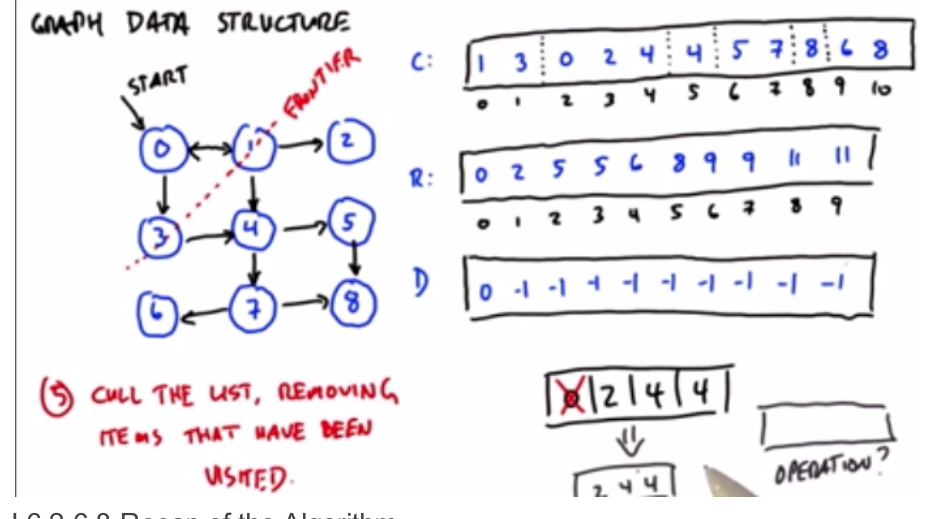 GRAPH DATA STRUCTURE
START
FRONTIER
0 1 2
3 4 5
6 7 8
C: 1 3 0 2 4 4 5 7 8 6 8
0 1 2 3 4 5 6 7 8 9 10
R: 0 2 5 5 6 8 9 9 11 11
0 1 2 3 4 5 6 7 8 9
D 0 -1 -1 -1 -1 -1 -1 -1 -1 -1
⑤ CULL THE LIST, REMOVING
ITEMS THAT HAVE BEEN
VISITED.
0 2 4 4
2 4 4
OPERATION?